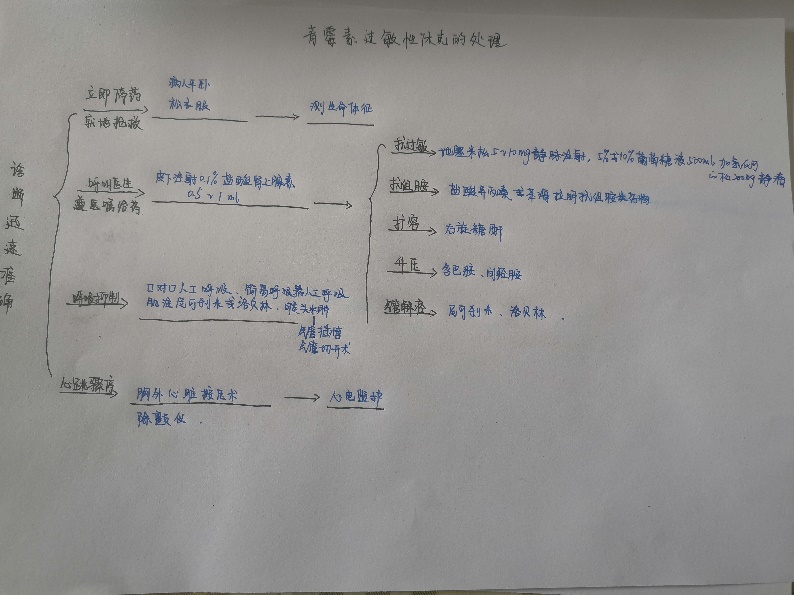 青霉素过敏性休克的处理
诊断迅速准确
立即停药
实地抢救
病人平卧
松衣服
测生命体征
呼叫医生
遵医嘱给药
皮下注射0.1%盐酸肾上腺素
0.5~1ml
抗过敏
地塞米松5~10mg静脉注射,5%或10%葡萄糖液500ml加氢化可
的松200mg静滴
抗组胺
盐酸异丙嗪或苯海拉明抗组胺类药物
扩容
右旋糖酐
升压
多巴胺、间羟胺
缓解
尼可刹米、洛贝林.
呼吸抑制
口对口人工呼吸、简易呼吸器人工呼吸
肌注尼可刹米或洛贝林、喉头水肿
气管插管
气管切开术
心跳骤停
胸外心脏按压术
除颤仪.
心电监护